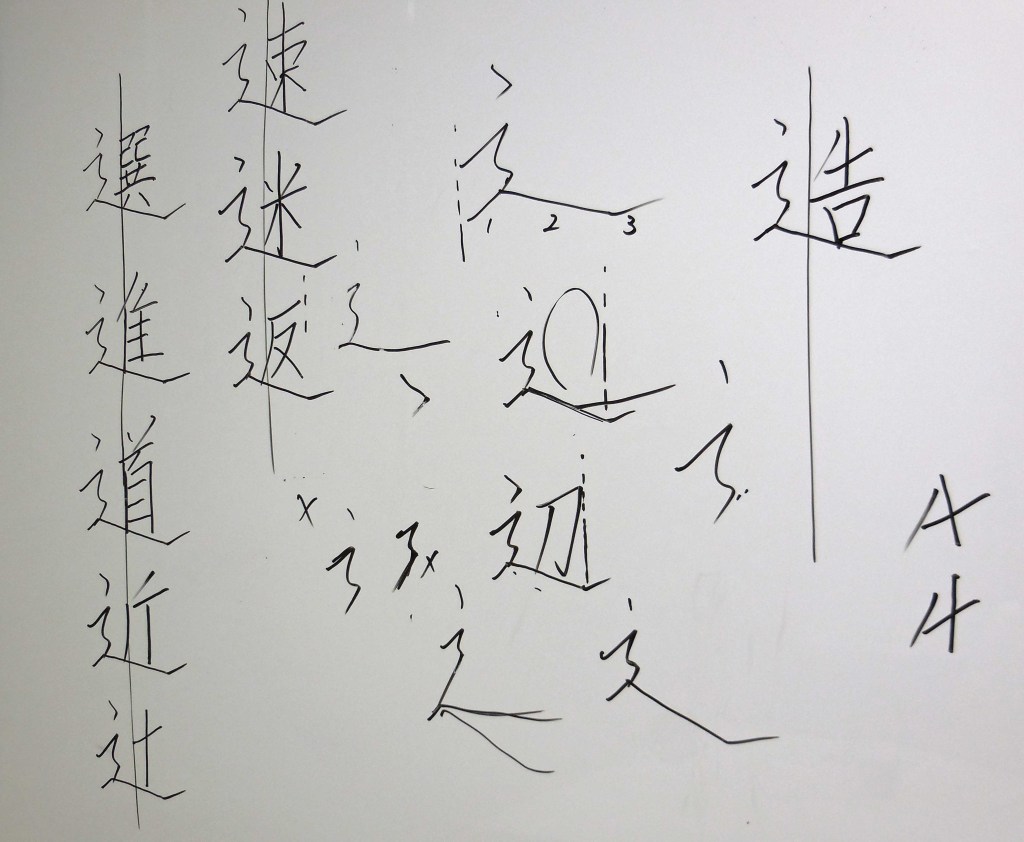 速
選
迷
進
返
道
近
辻
1 2 3
辺
造